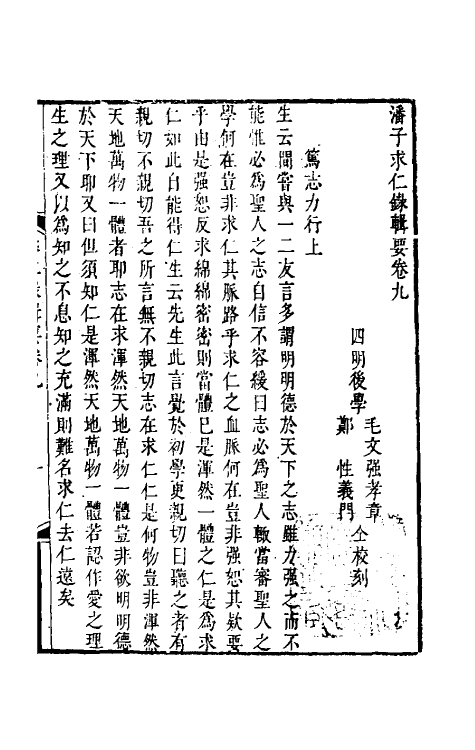 潘子求仁錄輯要卷九
四明後學
毛文强孝章
鄭性義門
仝校刻
篤志力行上
生云聞嘗與一二友言多謂明明德於天下之志雖力强之而不
能惟必為聖人之志自信不容緩曰志必為聖人敢當審聖人之
學何在豈非求仁其脈路乎求仁之血脈何在豈非强恕其欵要
乎由是强恕反求綿綿密密則當體已是渾然一體之仁是為求
仁如此自能得仁生云先生此言覺於初學更親切曰聽之者有
親切不親切吾之所言無不親切志在求仁仁是何物豈非渾然
天地萬物一體者耶志在求渾然天地萬物一體豈非欲明明德
於天下耶又曰但須知仁是渾然天地萬物一體若認作愛之理
生之理又以為知之不息知之充滿則難名求仁去仁遠矣